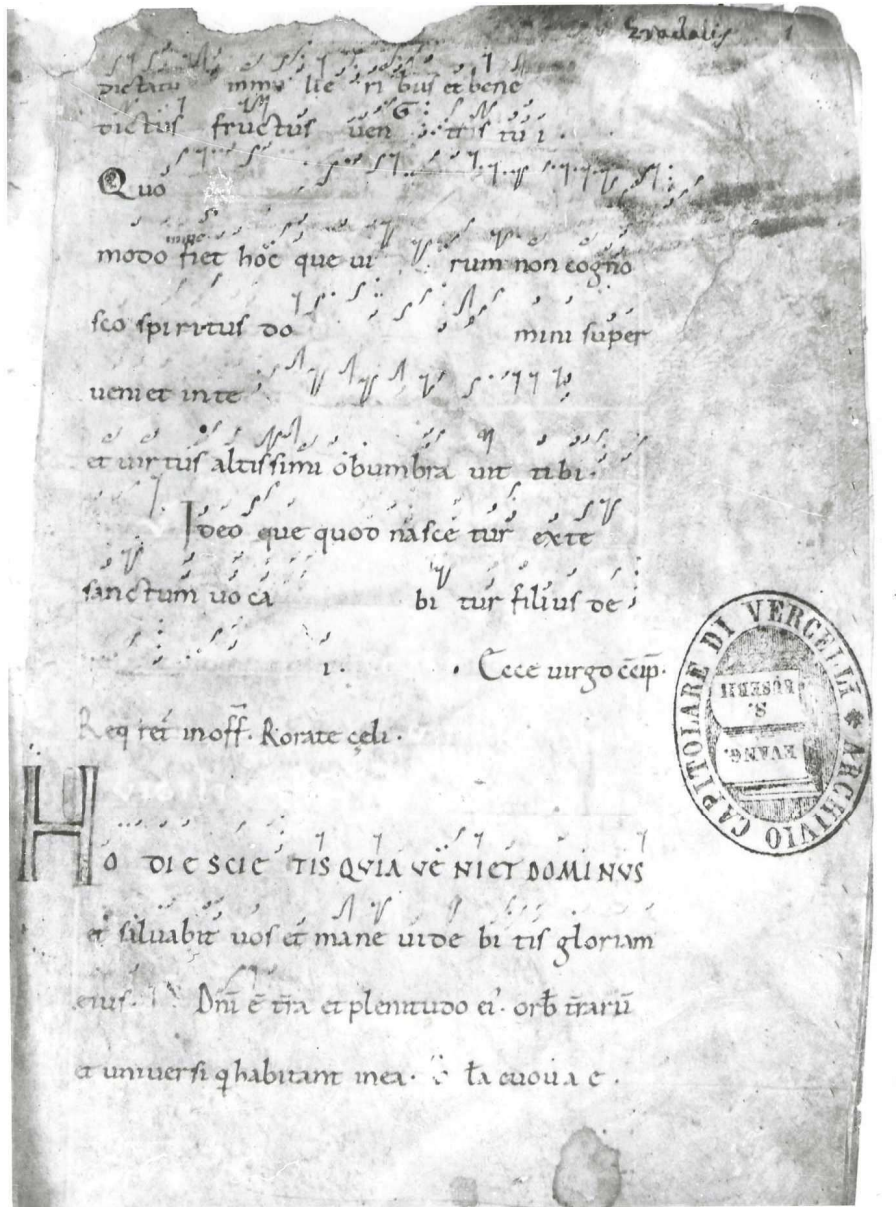 Gradalis 1
dictatu inmu lie ri bus et bene
dictus fructus uen tris tu i.
Quo
modo fiet hoc que ui rum non cogno
sco spiritus do mini super
ueniet in te
et uirtus altissimi obumbra uit tibi.
Ideo que quod nasce tur exte
sanctum uoca bi tur filius de
i. Ecce uirgo c̄cip̄.
Req ret in off̄. Rorate celi.
HO DIE SCIE TIS QVIA VE NIET DOMINVS
et saluabit uos et mane uide bi tis gloriam
eius. Dn̄i ē tr̄a et plenitudo ei'. orb̄ tr̄arū
et uniuersi q habitant in ea. euouae.
ARCHIVIO CAPITOLARE DI VERCELLI
EVANG.
S.
EUSEBII